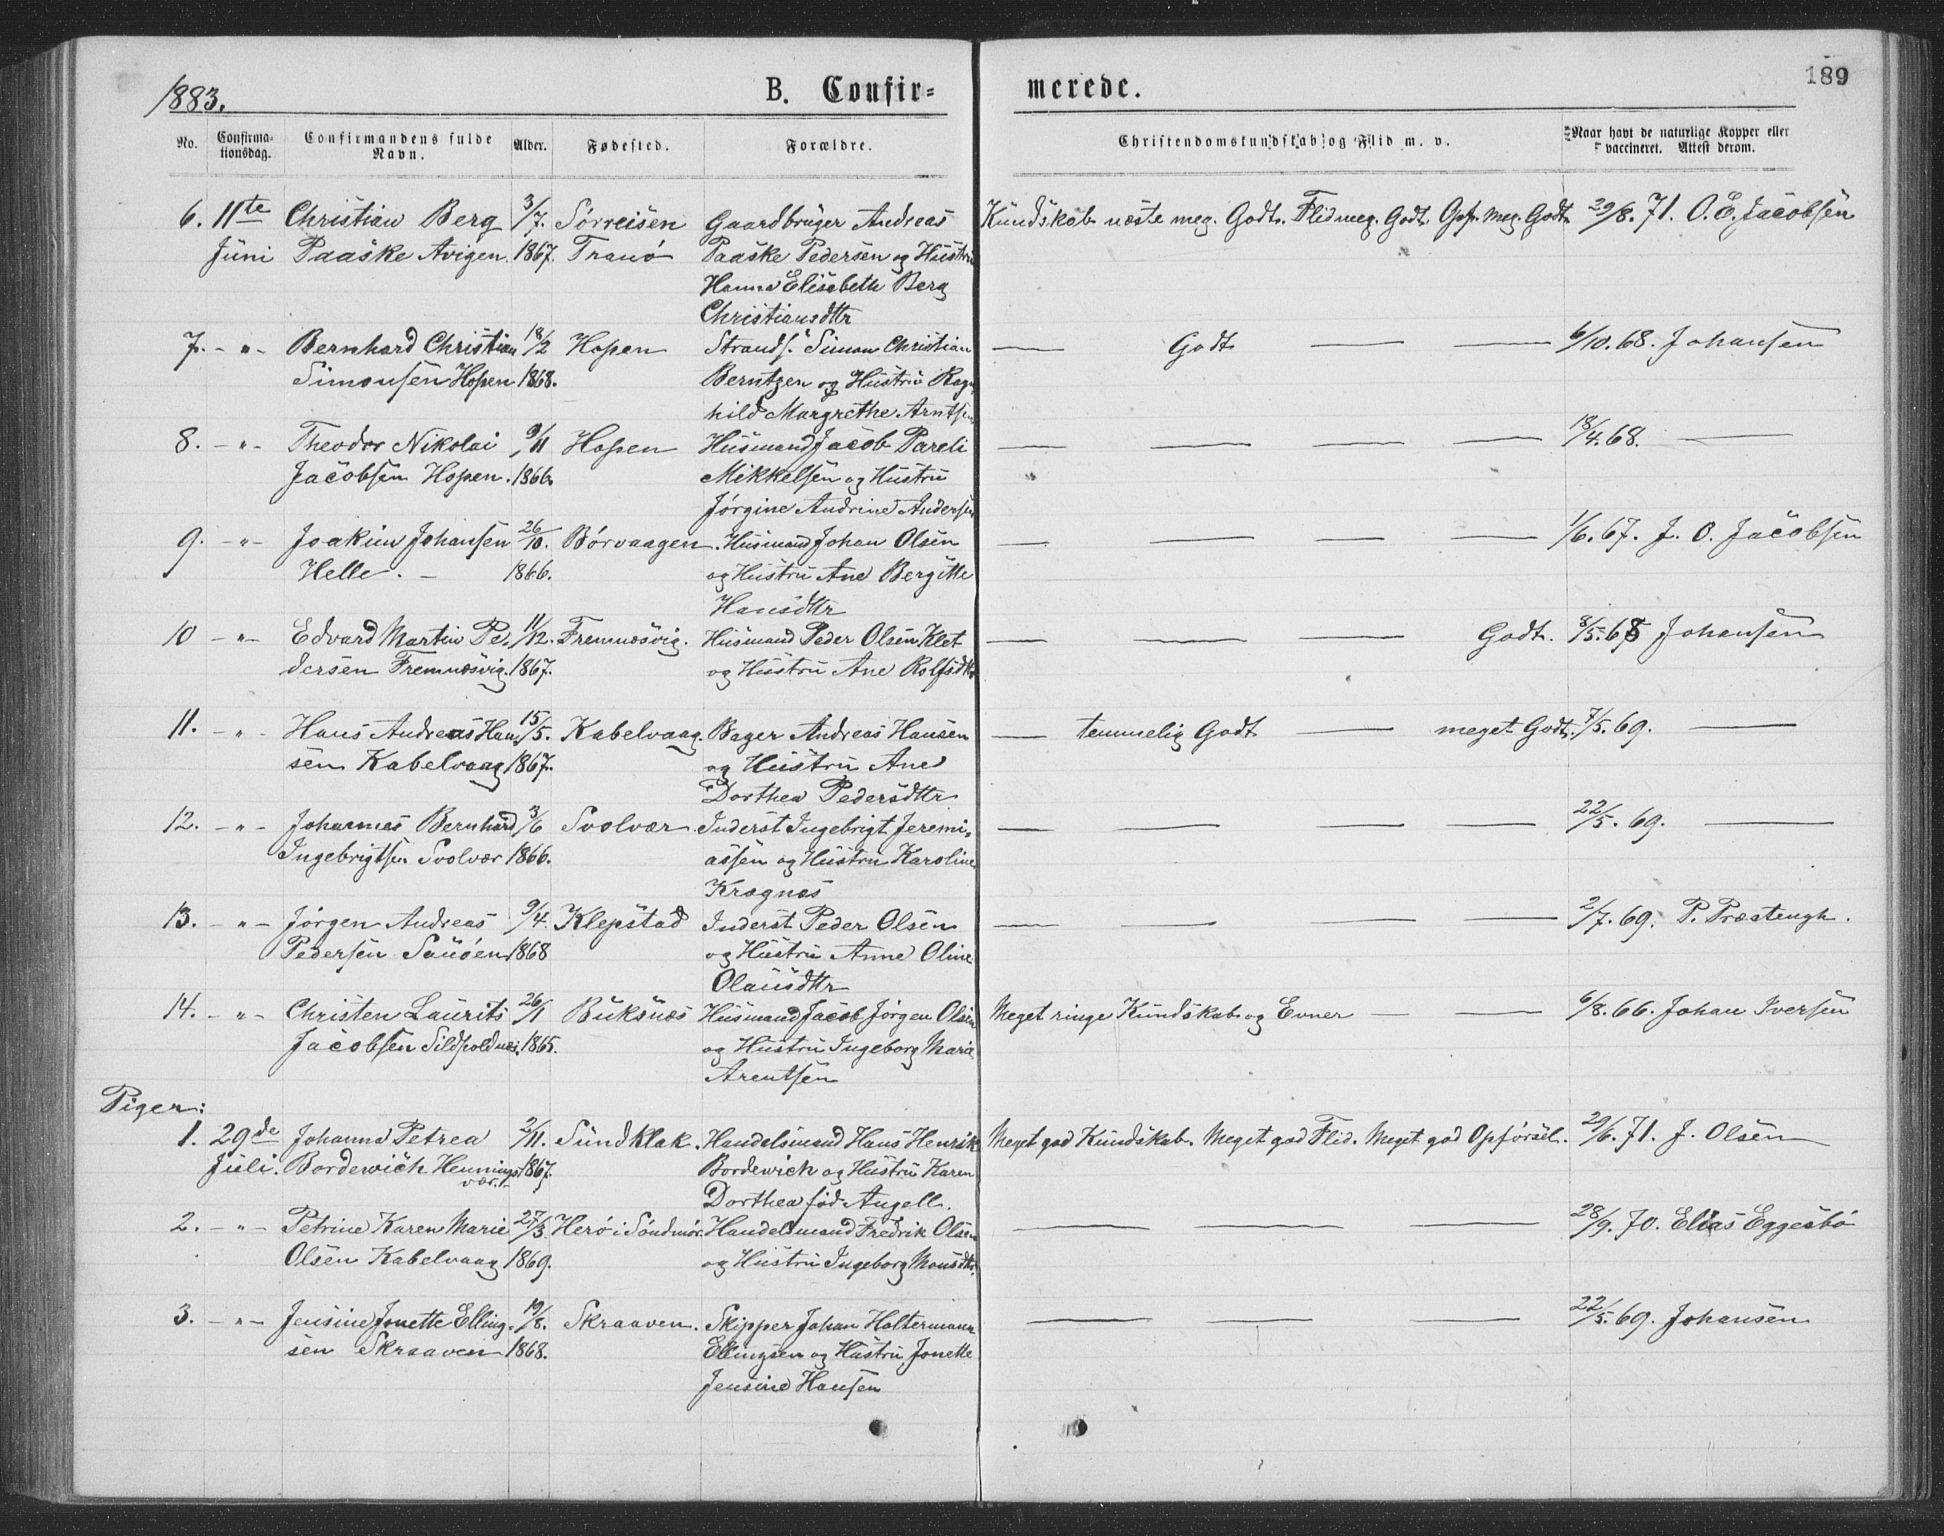 1883.
B. Confir-
merede.
189
No.
Confirma-
tionsdag.
Confirmandens fulde
Navn.
Alder.
Fødested.
Forældre.
Christendomskundskab og Flid m. v.
Naar havt de naturlige Kopper eller
vaccineret. Attest derom.
6. 11te Christian Berg 3/7. Sørreisen Gaardbruger Andreas Kundskab næste meg. Godt. Flid meg. Godt. Opf. Meg. Godt. 29/8. 71. O. E. Jacobsen
Juni Paaske Avigen. 1867. Tranø Paaske Pedersen og Hustru
Hanna Elisabeth Berg
Christiansdttr
7. - " - Bernhard Christian 18/2 Hopen Strands. Simon Christian — Godt — — 6/10. 68. Johansen
Simonsen Hopen 1868. Berntzen og Hustru Ragn
hild Margrethe Arntsen
8. - " - Theodor Nikolai 9/11 Hopen Husmand Jacob Pareli — — — — 18/4. 68. —
Jacobsen Hopen. 1866. Mikkelsen og Hustru
Jørgine Andrine Andersen
9. - " - Joakim Johansen 26/10. Børvaagen. Husmand Johan Olsen — — — — 1/6. 67. J. O. Jacobsen
Helle. - 1866. og Hustru Ane Bergitte
Hansdttr
10 - " - Edvard Martin Pe- 11/12. Fremnæsvig. Husmand Peder Olsen Klet — — — Godt. 3/5. 68 Johansen
dersen Fremnæsvig. 1867. og Hustru Ane Rolfsdtr
11. - " - Hans Andreas Han 15/5. Kabelvaag. Bager Andreas Hansen — temmelig Godt — meget Godt. 7/5. 69. —
sen Kabelvaag 1867. og Hustru Ane
Dorthea Pedersdttr
12. - " - Johannes Bernhard 3/6 Svolvær Inderst Ingebrigt Jeremi- — — — — 22/5. 69. —
Ingebrigtsen Svolvær 1866. assen og Hustru Karoline
Krognes
13. - " - Jørgen Andreas 9/4. Klepstad Inderst Peder Olsen — — — — 2/7. 69. P. Præstengh.
Pedersen Sauøen 1868 og Hustru Anne Oline
Olausdttr
14. - " - Christen Laurits 26/1 Buksnæs Husmand Jacob Jørgen Olsen Meget ringe Kundskab og Evner — — 6/8. 66. Johan Iversen
Jacobsen Sildpoldnæs. 1865. og Hustru Ingeborg Marie
Arentsen
Piger:
1. 29de Johanna Petrea 2/11. Sundklak. Handelsmand Hans Henrik Meget god Kundskab. Meget god Flid. Meget god Opførsel. 29/6. 71. J. Olsen
Juli. Bordewich Hennings 1867. Bordewich og Hustru Karen
vær. Dorthea fød Angell.
2. - " - Petrine Karen Marie 27/3. Herø i Søndmør. Handelsmand Fredrik Olsen — — — 28/9. 70. Elias Eggesbø
Olsen Kabelvaag 1869. og Hustru Ingeborg Monsdtr.
3. - " - Jensine Jonette Elling- 19/8. Skraaven. Skipper Johan Holtermann — — — 22/5. 69. Johansen
sen Skraaven 1868. Ellingsen og Hustru Jonette
Jensine Hansen